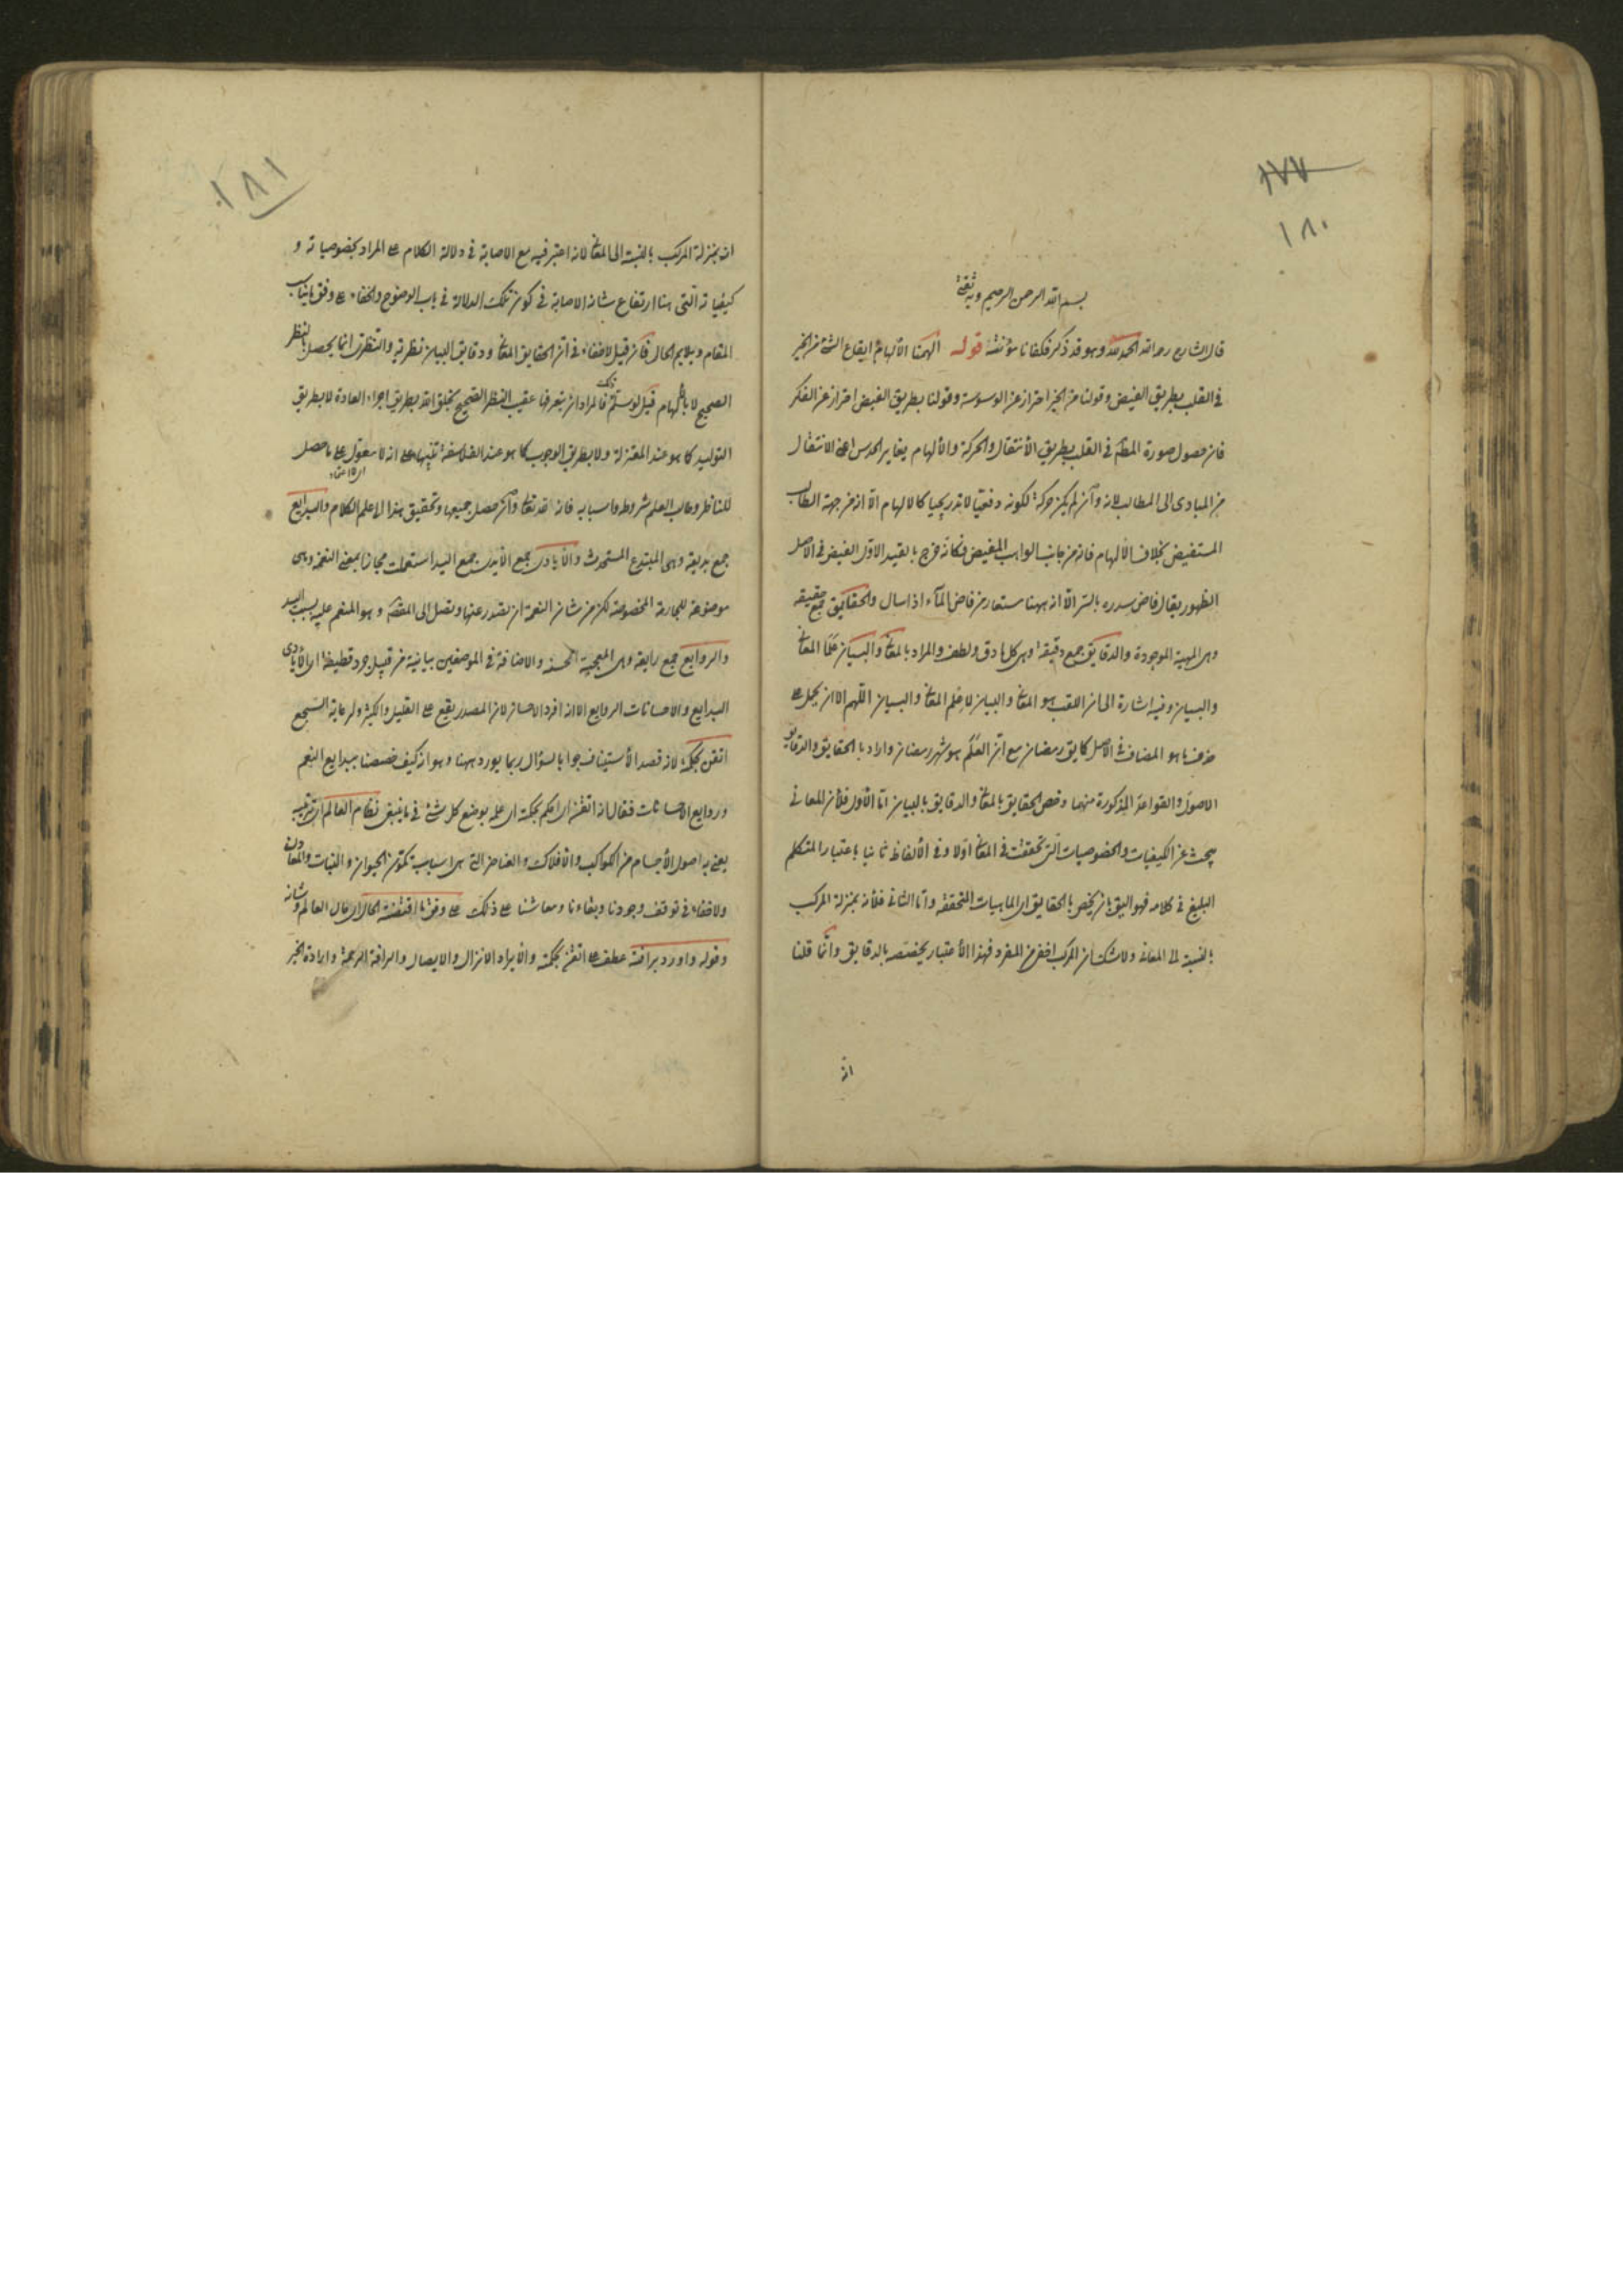 ١٧٧
١٨٠
بسم الله الرحمن الرحيم وبه ثقتي
قال الشارح رحمه الله الحمد لله وهو قد ذكر فكفانا مؤنته قوله الهمنا الالهام ايقاع الشئ من الخير
في القلب بطريق الفيض وقولنا من الخير احتراز عن الوسوسة وقولنا بطريق الفيض احتراز عن الفكر
فان حصول صورة المط في القلب بطريق الانتقال والحركة والالهام يغاير الحدس اعني الانتقال
من المبادى الى المطالب لانه وان لم يكن حركة لكونه دفعيا لا تدريجيا كالالهام الا انه من جهة الطالب
المستفيض بخلاف الالهام فانه من جانب الواهب المفيض فكانه خرج بالقيد الاول الفيض في الاصل
الظهور يقال فاض سره بالستر الا انه ههنا مستعار من فاض المآء اذا سال والحقايق جمع حقيقه
وهى المهية الموجودة والدقايق جمع دقيقة وهى كل ما دق ولطف والمراد بالمعاني والبيان علما المعاني
والبيان وفيه اشارة الى ان اللقب هو المعاني والبيان لا علم المعاني والبيان اللهم الا ان يحمل على
حذف ما هو المضاف في الاصل كما يق رمضان مع ان العلم هو شهر رمضان واراد بالحقايق والدقايق
الاصول والقواعد المذكورة منهما وخص الحقايق بالمعاني والدقايق بالبيان اما الاول فلان المعاني
يبحث عن الكيفيات والخصوصيات التى تحققت في المعاني اولا وفي الالفاظ ثانيا باعتبار المتكلم
البليغ في كلامه فهو اليق بان يخص بالحقايق اى الماهيات المتحققة واما الثانى فلانه بمنزلة المركب
بالنسبة الى المعانى ولا شك ان المركب اخفى من المفرد فبهذا الاعتبار يختص بالدقايق وانما قلنا
انه
١٨١
انه بمنزلة المركب بالنسبة الى المعاني لانه اعتبر فيه مع الاصابة في دلالة الكلام على المراد بخصوصياته و
كيفياته التى بها ارتفاع شانه الاصابة في كون تلك الدلالة في باب الوضوح والخفاء على وفق ما يناسب
المقام ويلايم الحال فان قيل لا خفاء في ان الحقايق المعاني ودقايق البيان نظرية والنظرى انما يحصل بالنظر
الصحيح لا بالالهام قيل لو سلم ذلك فالمراد ان يتعرفها عقيب النظر الصحيح بخلق الله بطريق اجراء العادة لا بطريق
التوليد كما هو عند المعتزلة ولا بطريق الوجوب كما هو عند الفلاسفة تنبيها على انه لا معول على ما حصل
للناظر وطالب العلم شروطه واسبابه فانه الله تعالى وان حصل جميعها وتحقيق هذا الى علم الكلام والبدايع
جمع بديعة وهى المبتدع المستحدث والايادى جمع الايدى جمع اليد استعملت مجازا بمعنى النعمة وهى
موضوعة للجارحة المخصوصة لكن من شان النعمة ان تصدر عنها وتصل الى المقصد وهو المنعم عليه بسبب اليد
والروايع جمع رايعة وهى المعجبة الحسنة والاضافة في الموضعين بيانية من قبيل جرد قطيفة اى الايادى
البدايع والاحسانات الروايع الا انه افرد الاحسان لان المصدر يقع على القليل والكثير ولرعاية السجع
اتقن بحكمته لانه قصد الاستيناف جوابا لسؤال ربما يورد ههنا وهو انه كيف خصصنا ببدايع النعم
وروايع الاحسانات فقال انه اتقن اى احكم بحكمته اى علمه بوضع كل شئ في ما ينبغى نظام العالم اى ترتيبه
يعنى به اصول الاجسام من الكواكب والافلاك والعناصر التى هى اسباب تكون الحيوان والنبات والمعادن
ولا خفاء في توقف وجودنا وبقاءنا ومعاشنا على ذلك على وفق ما اقتضته الحال اى حال العالم وشانه
وقوله واورد برافته عطف على اتقن بحكمته والايراد الانزال والايصال والرافة الرحمة وارادة الخير